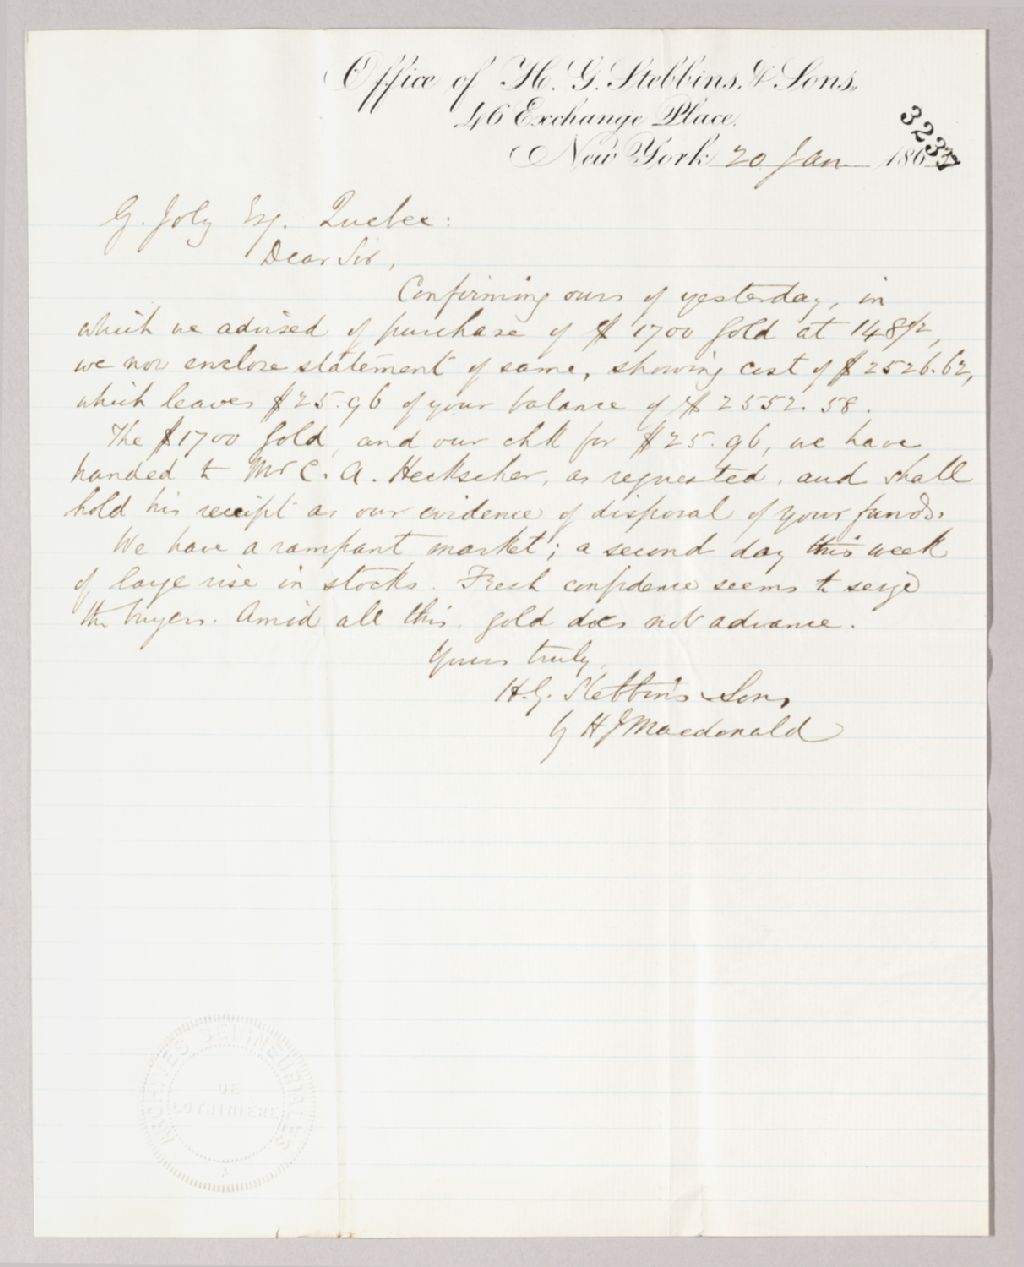 Office of H. G. Stebbins & Sons.
46 Exchange Place.
New York 20 Jan 186
3237
G. Joly Esq. Quebec:
Dear Sir,
Confirming ours of yesterday, in
which we advised of purchase of $1700 Gold at 148½,
we now enclose statement of same, showing cost of $2526.62,
which leaves $25.96 of your balance of $2552.58.
The $1700 Gold, and our chk for $25.96, we have
handed to Mr C. A. Heckscher, as requested, and shall
hold his receipt as our evidence of disposal of your funds.
We have a rampant market; a second day this week
of large rise in stocks. Fresh confidence seems to seize
the buyers. Amid all this, gold does not advance.
Yours truly,
H. G. Stebbins & Sons
by H J Macdonald
ARCHIVES SEIGNEURIALES
DE
LOTBINIERE